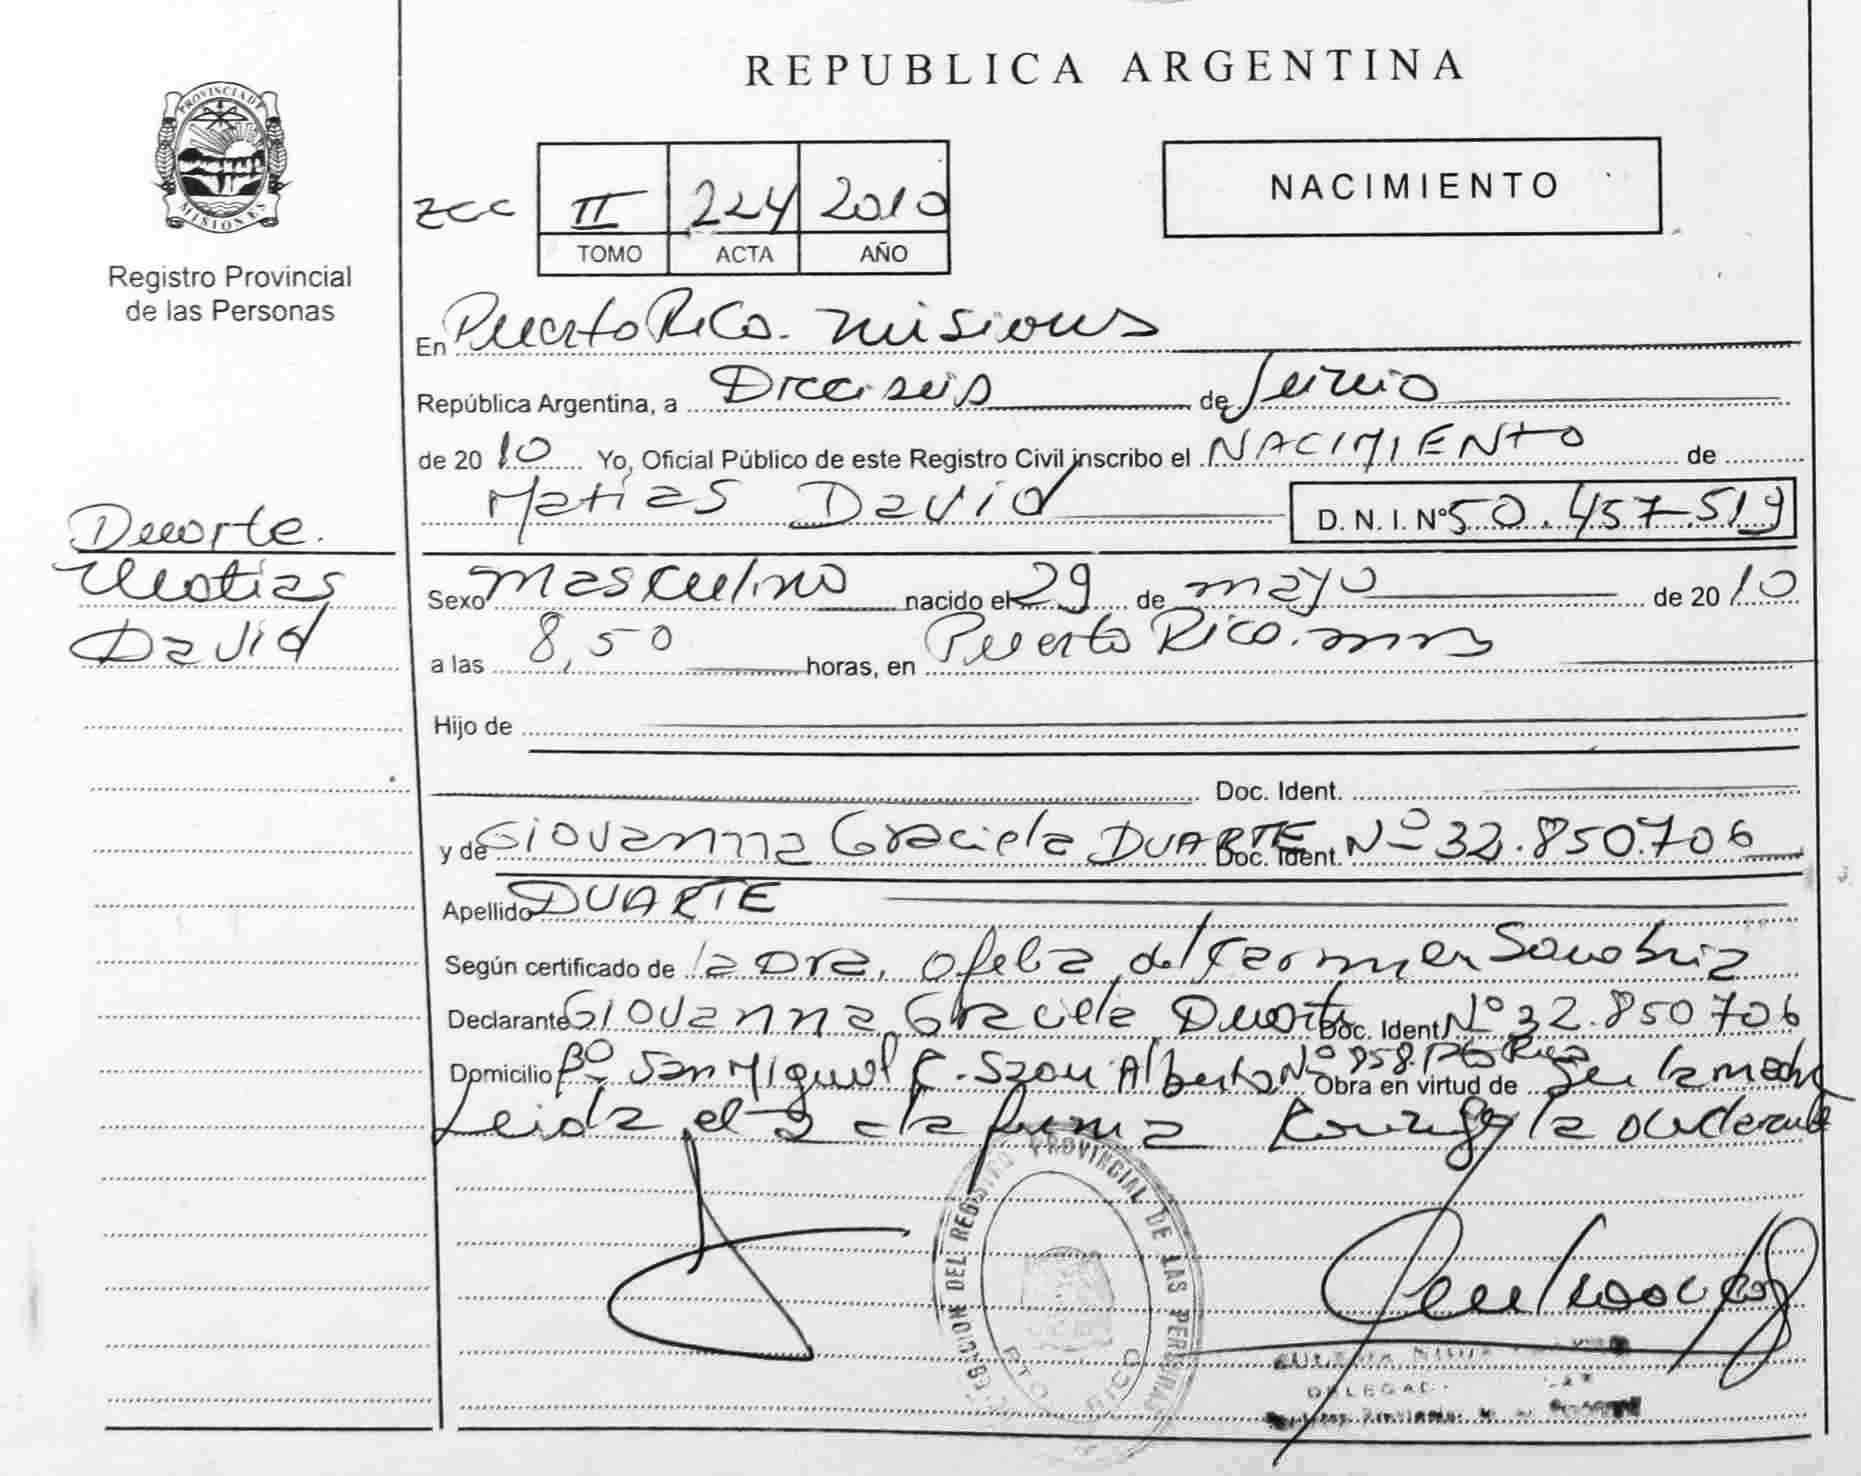 REPUBLICA ARGENTINA
PROVINCIA DE
MISIONES
Registro Provincial
de las Personas
zcc II 224 2010
TOMO ACTA AÑO
NACIMIENTO
En Puerto Rico. misiones
República Argentina, a Dieciseis de Junio
de 2010 Yo, Oficial Público de este Registro Civil inscribo el NACIMIENTO de
Matias David D. N. I. Nº 50.457.519
Duarte.
Matias
David
Sexo masculino nacido el 29 de mayo de 2010
a las 8,50 horas, en Puerto Rico. mns
Hijo de
Doc. Ident.
y de Giovanna Graciela DUARTE Doc. Ident. Nº 32.850.706
Apellido DUARTE
Según certificado de la Dra. Ofelia del Carmen Sanabria
Declarante Giovanna Graciela Duarte Doc. Ident. Nº 32.850706
Domicilio Bº San Miguel C. San Alberto Nº 858. Pto Rico Obra en virtud de Ser la madre
Leida el acta firma Conmigo la declarante
DEL REGISTRO PROVINCIAL DE LAS PERSONAS
PTO RICO
DELEGAD